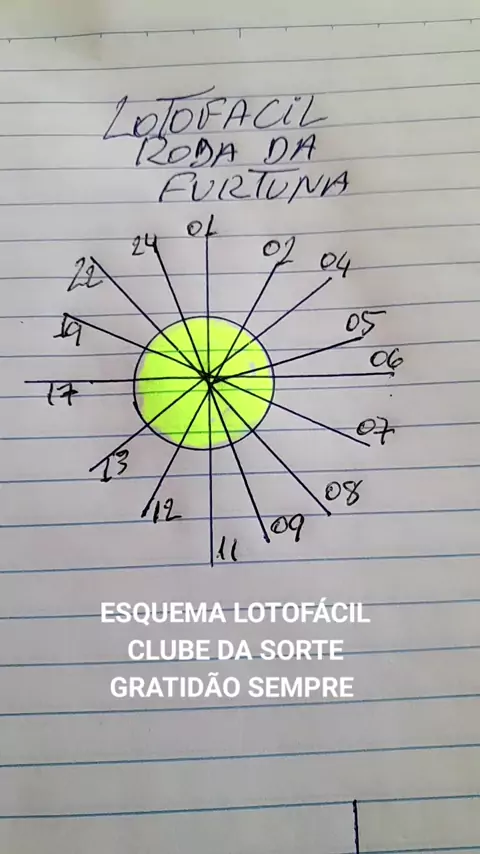 LOTOFACIL
RODA DA
FURTUNA
01
02
04
05
06
07
08
09
11
12
13
17
19
22
24
ESQUEMA LOTOFÁCIL
CLUBE DA SORTE
GRATIDÃO SEMPRE